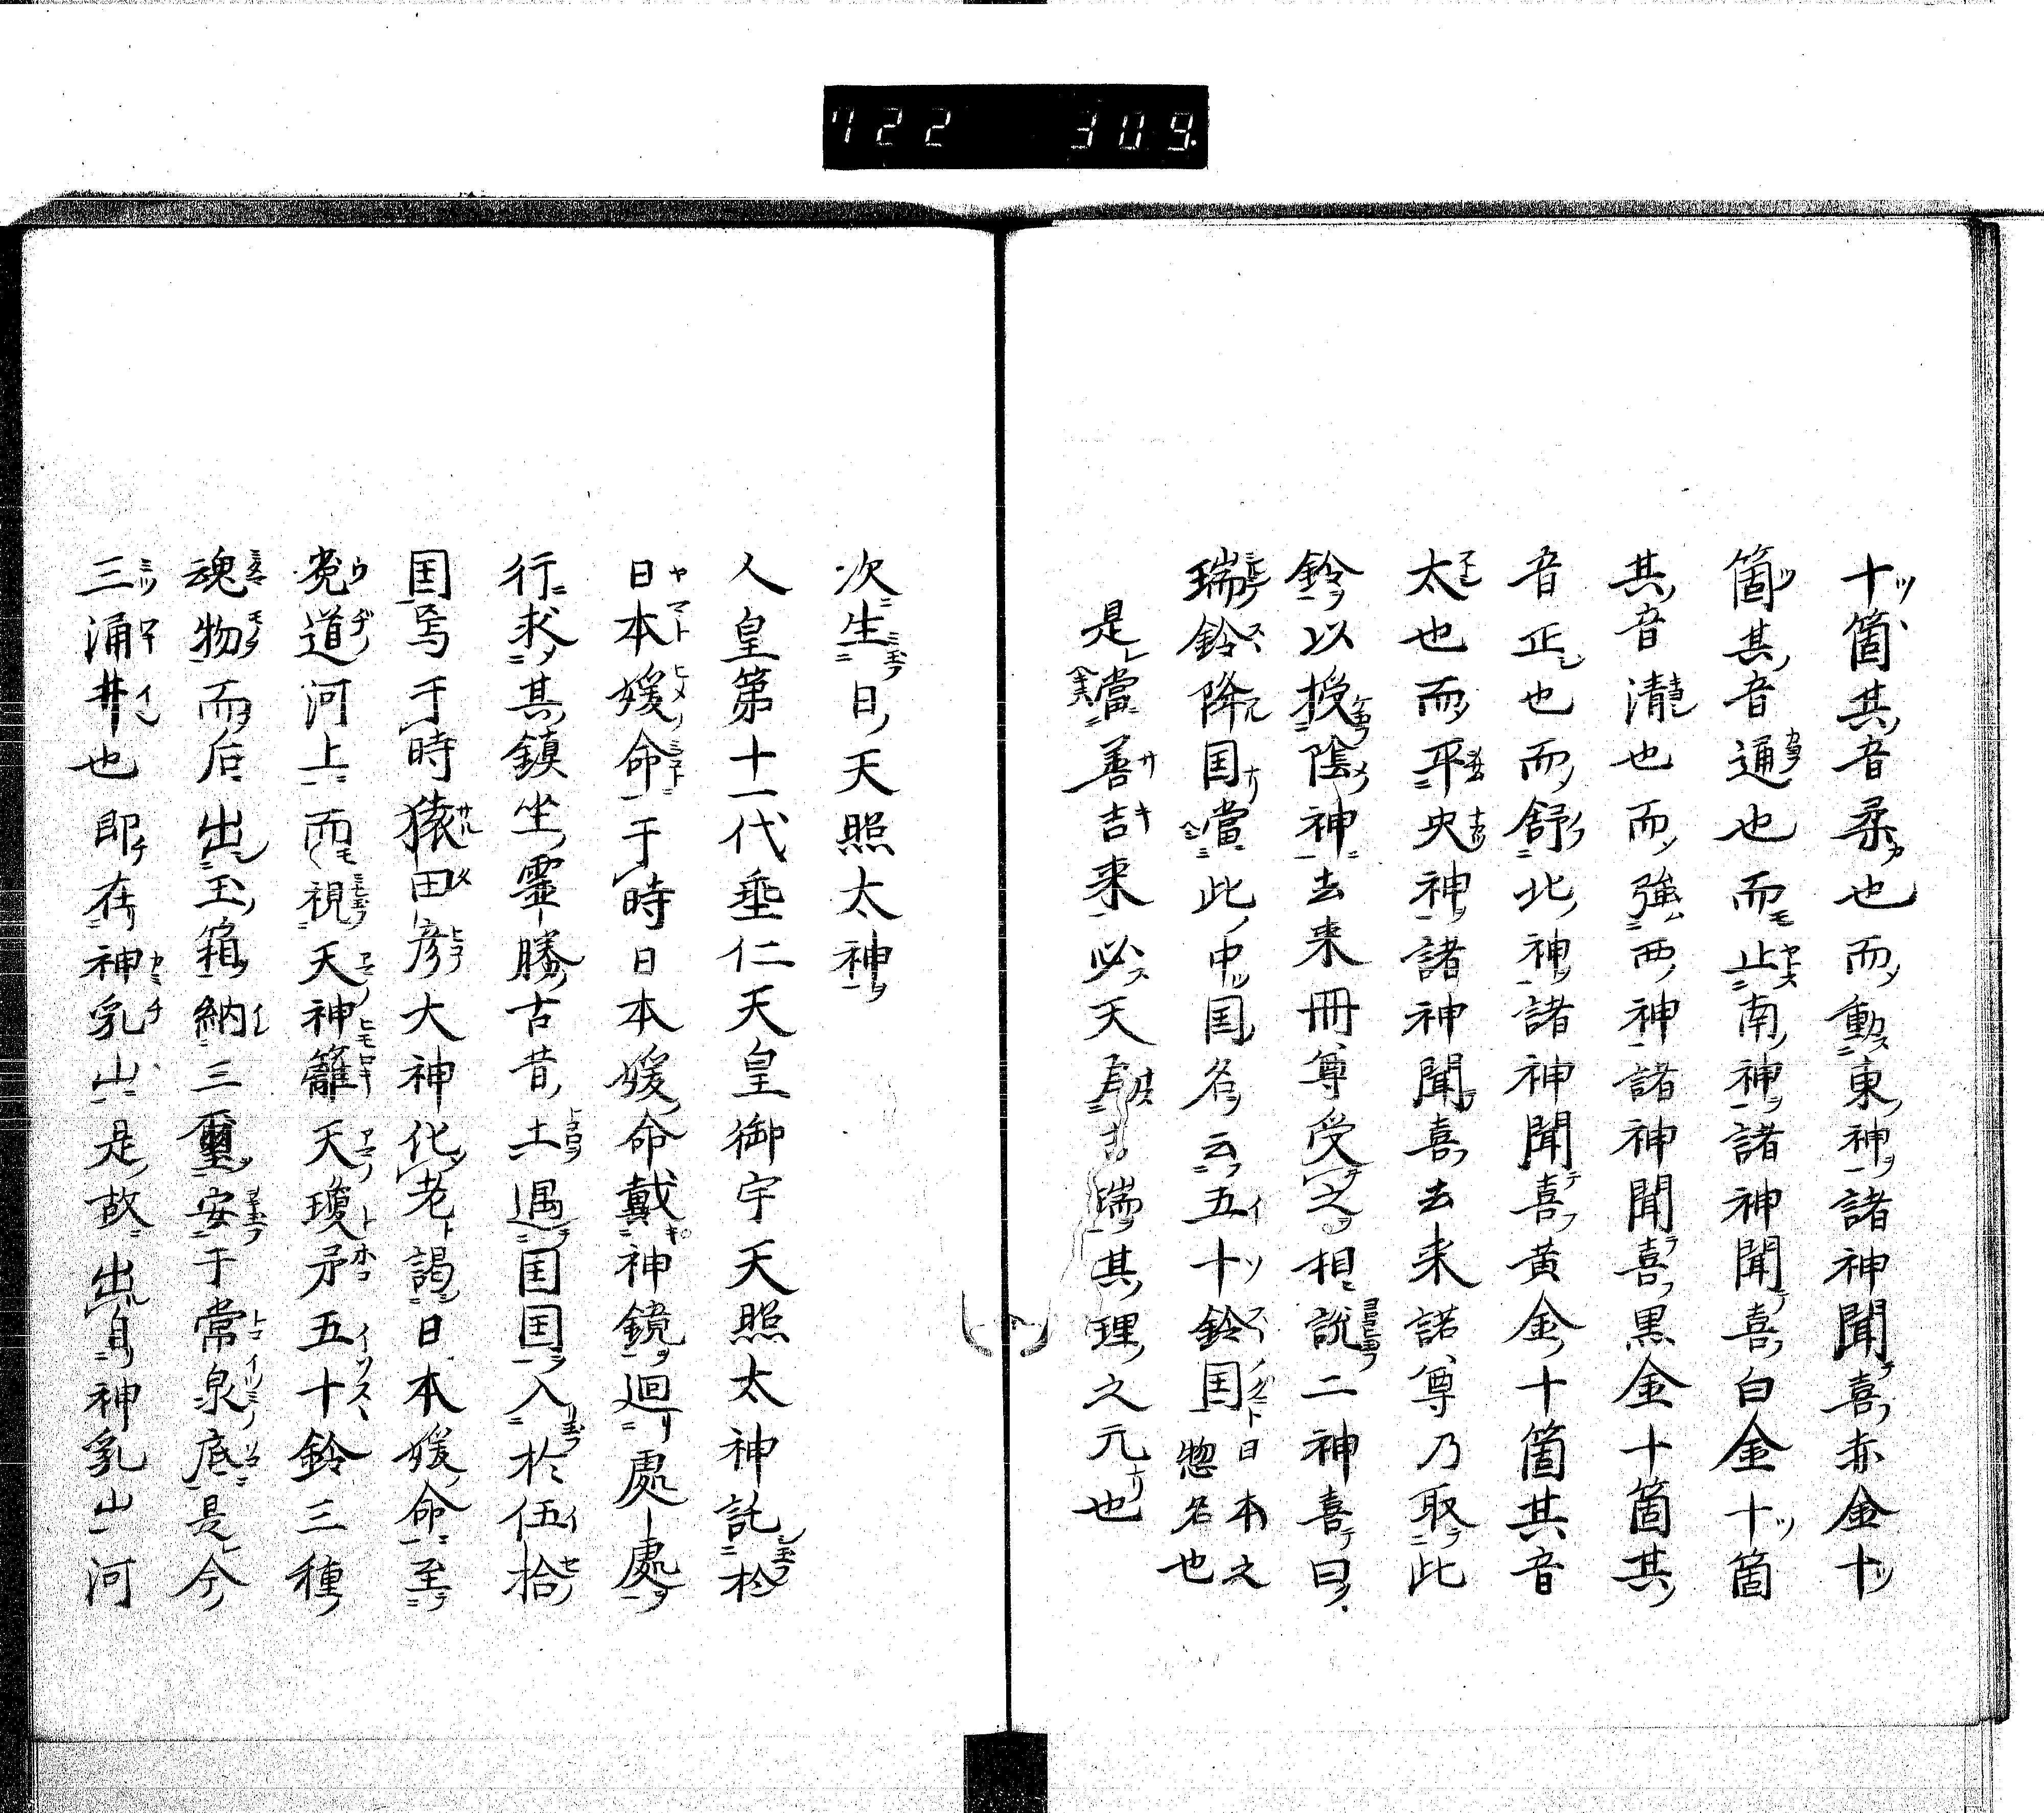 722 309.
十箇其音柔也而動東神諸神聞喜赤金十
箇其音通也而止南神諸神聞喜白金十箇
其音清也而強西神諸神聞喜黒金十箇其
音正也而舒北神諸神聞喜黄金十箇其音
太也而平央神諸神聞喜去来諾尊乃取此
鈴以授陰神去来冊尊受之相説二神喜曰
瑞鈴降国當此中国名云五十鈴国日本之
惣名也
是當善吉来必天吉瑞其理之元也
次生日天照太神
人皇第十一代垂仁天皇御宇天照太神託於
日本媛命于時日本媛命戴神鏡迴處處
行求其鎮坐霊勝古昔土遇国国入於伍拾
国焉于時猿田彦大神化老謁日本媛命至
菟道河上而視天神籬天瓊矛五十鈴三種
魂物而后出玉箱納三璽安于常泉底是今
三涌井也即在神乳山是故出自神乳山河